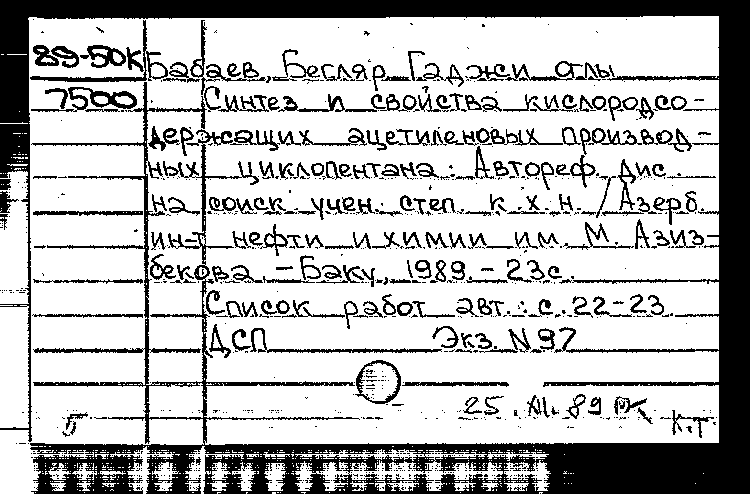 89-50К Бабаев, Бегляр Гаджи оглы
7500 Синтез и свойства кислородсо-
держащих ацетиленовых производ-
ных циклопентана : Автореф. дис.
на соиск. учен. степ. к.х.н. / Азерб.
ин-т нефти и химии им. М. Азиз-
бекова. – Баку, 1989. – 23с.
Список работ авт.: с. 22–23.
ДСП Экз. N 97
25.XII.89
Б К.Т.